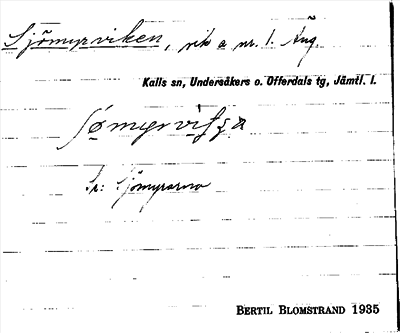 Sjömyrviken, vik a nr. 1. Äng
Kalls sn, Undersåkers o. Offerdals tg, Jämtl. l.
Sjömyrarna
BERTIL BLOMSTRAND 1935